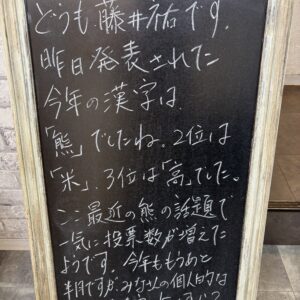 どうも藤井祐です。
昨日発表されてた
今年の漢字は
「熊」でしたね。2位は
「米」、3位は「高」でした。
ここ最近の熊の話題で
一気に投票数が増えた
ようです。今年ももうあと
半月ですが、みなさんの個人的な